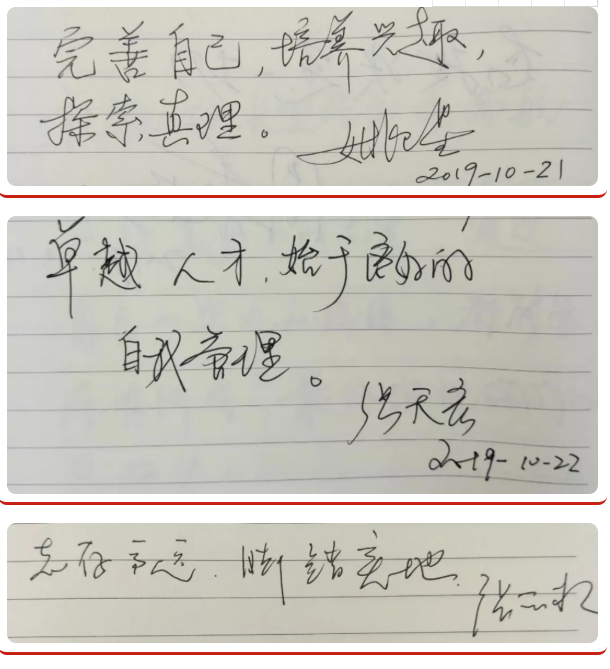 完善自己，培养兴趣，
探索真理。
2019-10-21
卓越人才，始于良好的
自我管理。
张天宏
2019-10-22
志存高远，脚踏实地。